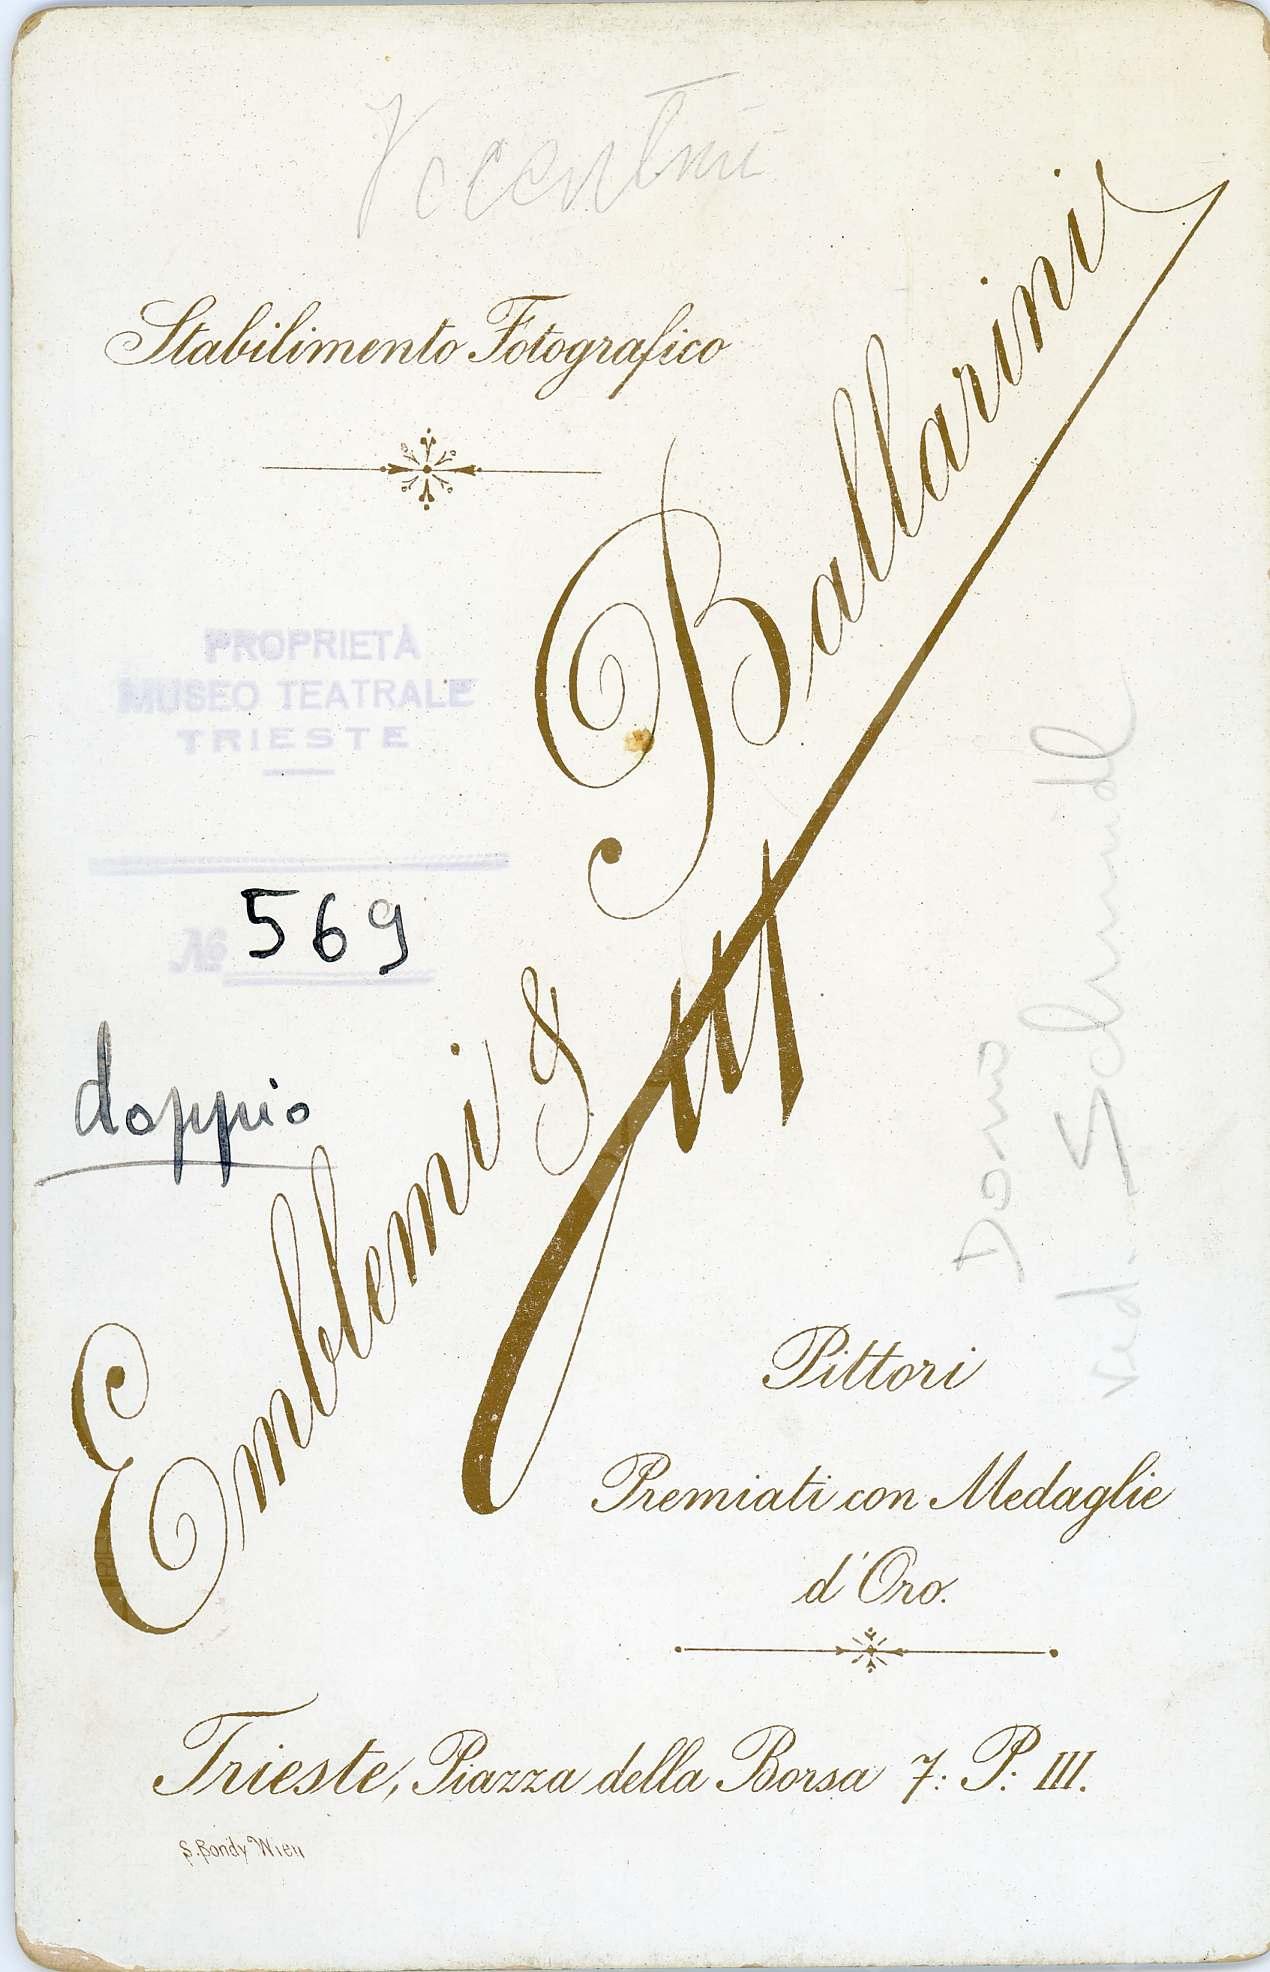 Stabilimento Fotografico
Emblemi & Ballarini
PROPRIETÀ
MUSEO TEATRALE
TRIESTE
№ 569
doppio
Dono
ved. Schmidl
Pittori
Premiati con Medaglie
d'Oro.
Trieste, Piazza della Borsa 7: P: III.
S. Bondy Wien